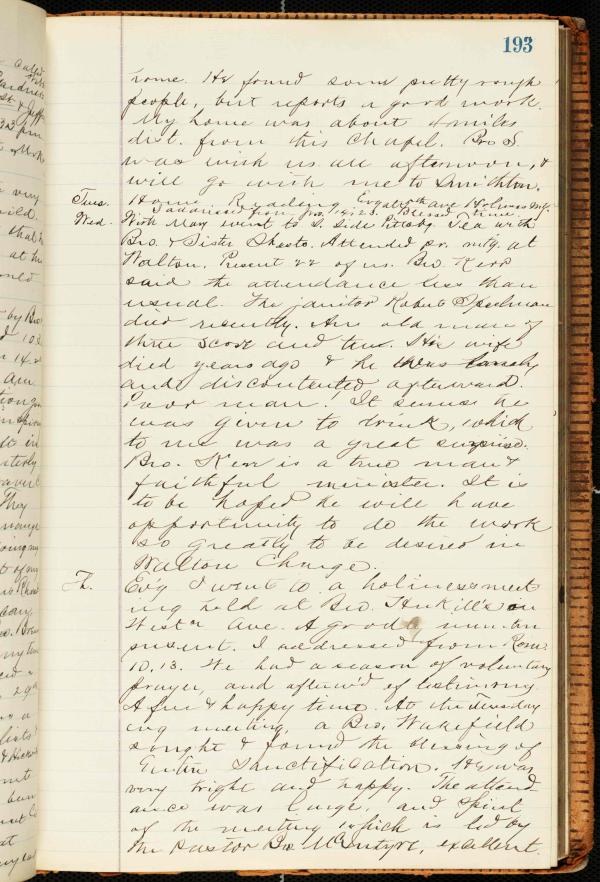 193
home. He found some pretty rough
people, but reports a good work.
My home was about 4 miles
dist. from this Chapel. Bro S.
was with us all afternoon, &
will go with me to Smithton.
Tues. Home. Reading. Evg at Ave Holiness mtg.
I addressed from Jno. Blessed time.
Wed. With May went to S. Side Pittsbg. Tea with
Bro. & Sister Shests. Attended pr. mtg. at
Walton. Present 22 of us. Bro. Kerr
said the attendance less than
usual. The janitor Robert Spealman
died recently. An old man of
three score and ten. His wife
died years ago & he was lonely
and discontented afterward.
Poor man! It seems he
was given to drink, which
to me was a great surprise.
Bro. Kerr is a true man &
faithful minister. It is
to be hoped he will have
opportunity to do the work
so greatly to be desired in
Walton Charge.
Th. Ev'g I went to a holiness meet
ing held at Bro. Hukill's on
West'n Ave. A good number
present. I addressed from Rom.
10.13. We had a season of voluntary
prayer, and afterw'd of testimony.
A fine & happy time. At the Tuesday
evg meeting, a Bro. Wakefield
sought & found the blessing of
Entire Sanctification. He was
very bright and happy. The attend
ance was large, and Spirit
of the meeting which is led by
the Pastor Bro McIntyre, excellent.